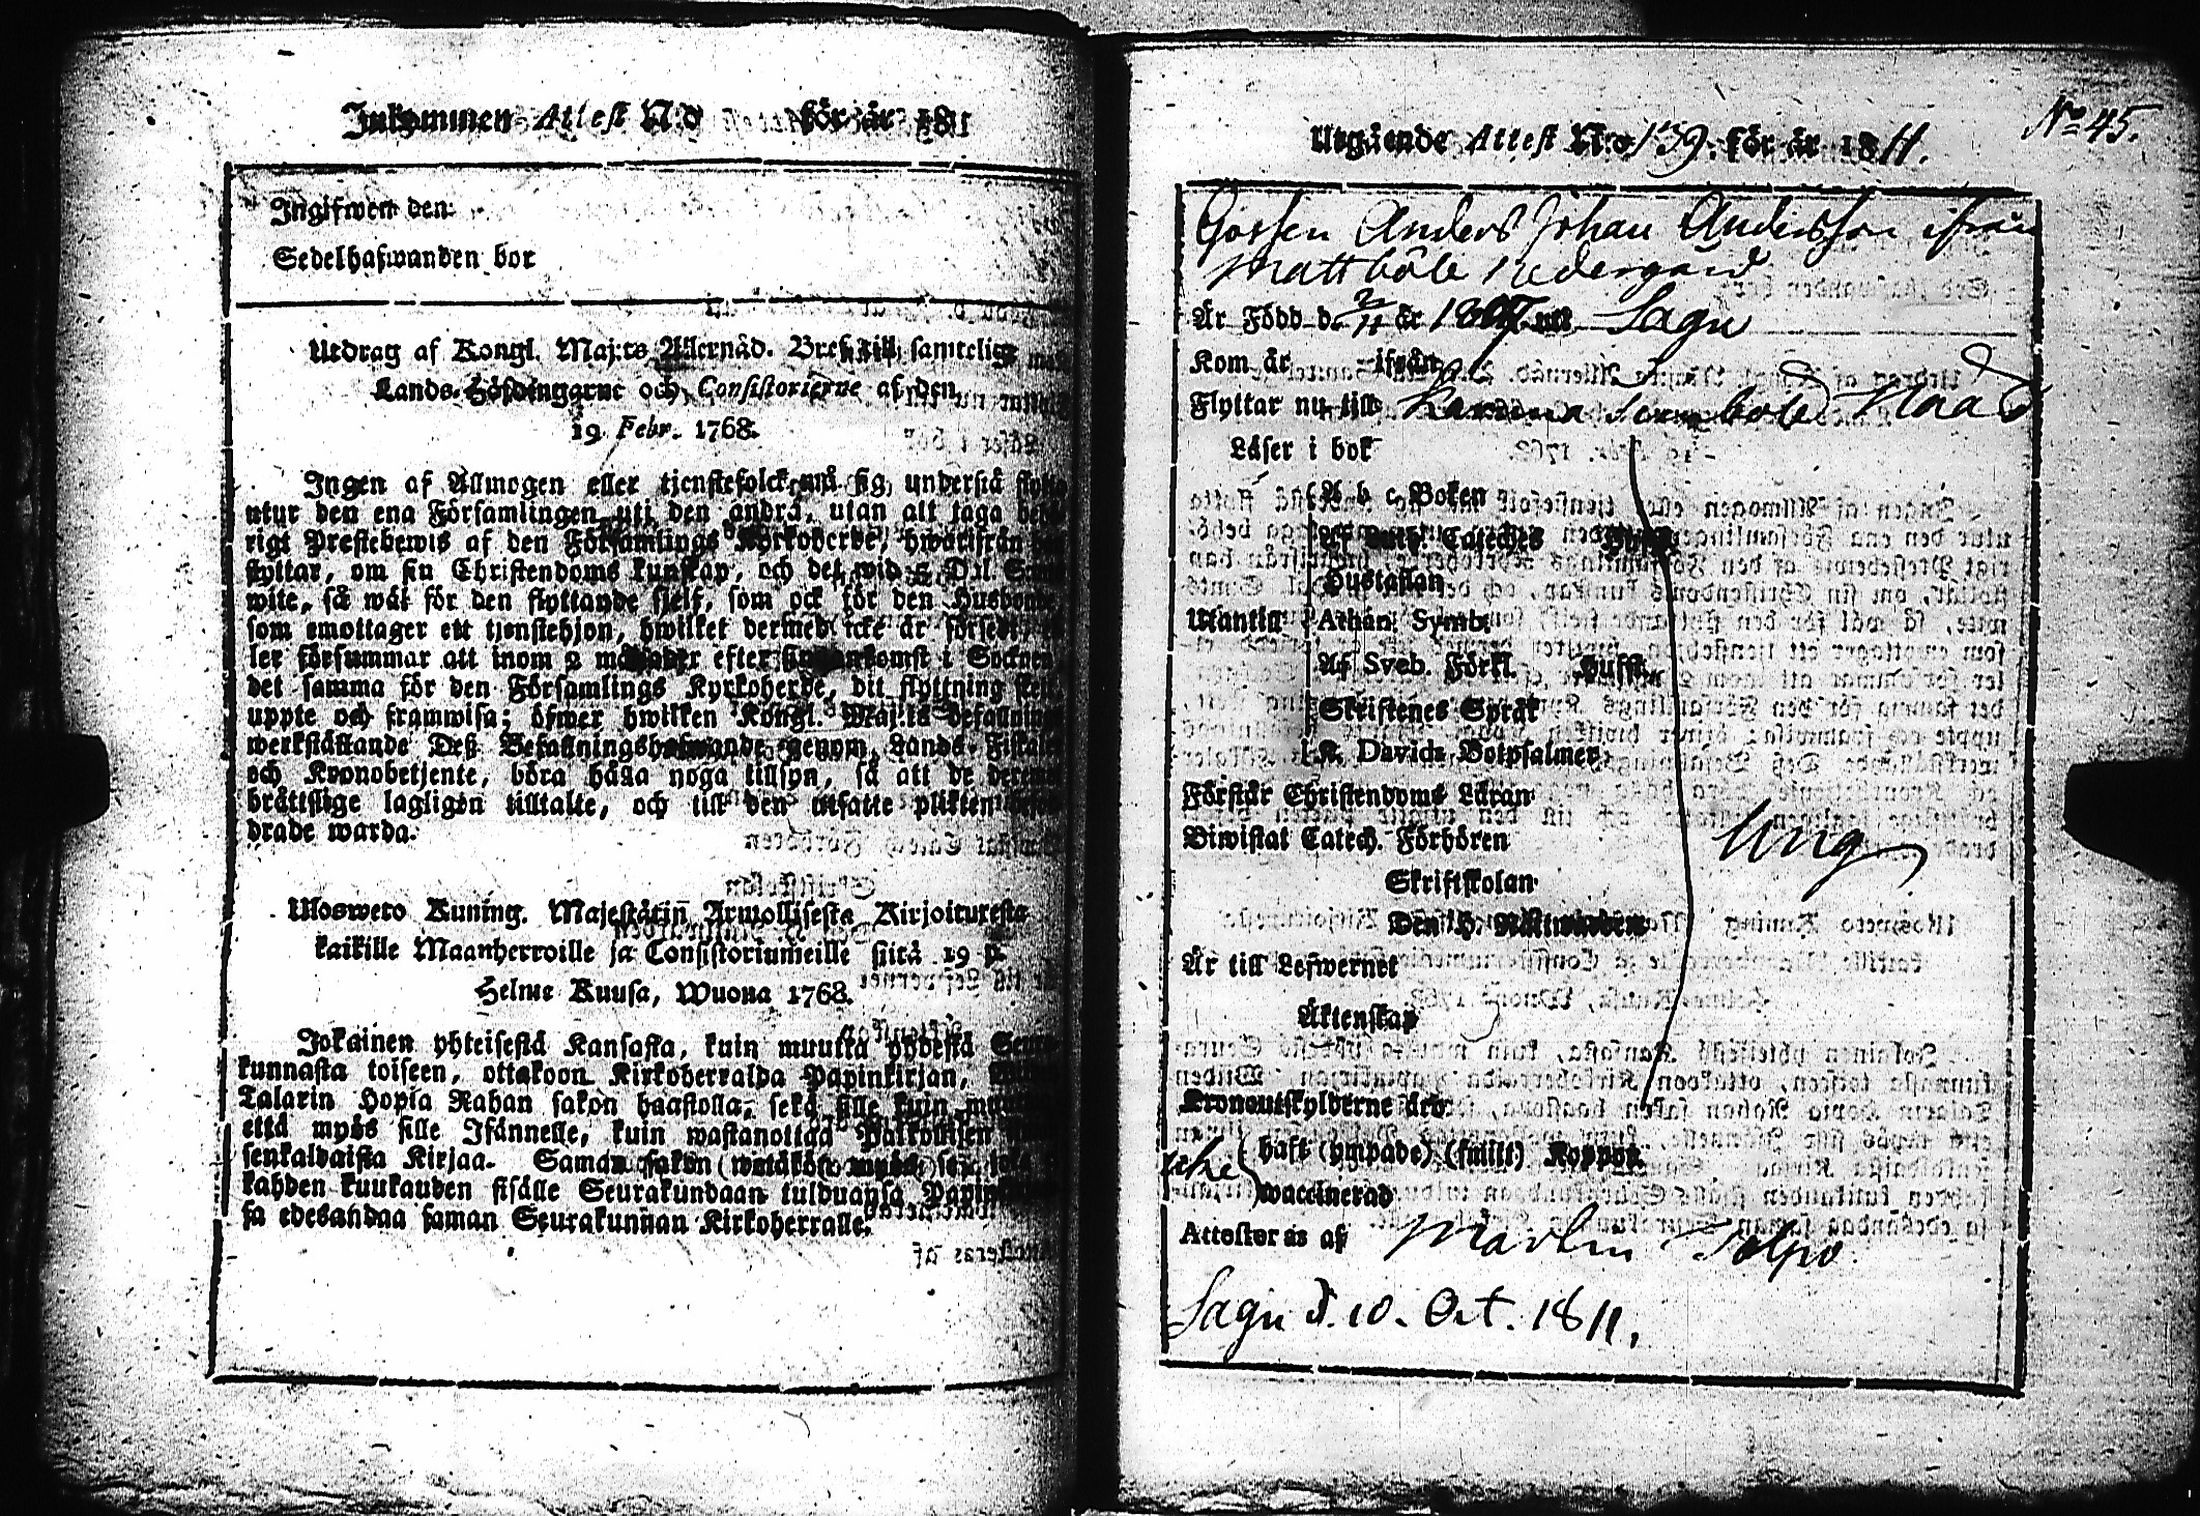 Inkommen Attest N:o för år 181
Ingifwen den
Sedelhafwanden bor
Utdrag af Kongl. Maj:ts Allernåd. Bref till samtelige
Lands-Höfdingarne och Consistorierne af den
19 Febr. 1768.
Ingen af Allmogen eller tjenstefolck må sig understå flytta
utur den ena Församlingen uti den andra, utan att taga behö-
rigt Prestebewis af den Församlings Kyrkoherde, hwarifrån han
flyttar, om sin Christendoms kunskap, och det wid 2 D:l. S:mts
wite, så wäl för den flyttande sjelf, som ock för den Husbonde
som emottager ett tjenstehjon, hwilket dermed icke är försedt, el-
ler försummar att inom 2 månader efter sin ankomst i Socknen
det samma för den Församlings Kyrkoherde, dit flyttning skett,
uppte och framwisa; öfwer hwilken Kongl. Maj:ts befallning
werkställande Deß Befallningshafwande genom Lands-Fiskaler
och Kronobetjente, böra hålla noga tillsyn, så att de deremot
bråttslige lagligen tilltalte, och till den utsatte plikten
drade warda.
Uloswero Kuning. Majestätin Armollisesta Kirjoituresta
kaikille Maanherroille ja Consistoriumeille siitä 19 p.
Helme Kuusa, Wuona 1768.
Jokainen yhteisestä Kansasta, kuin muutta yhdestä Seura-
kunnasta toiseen, ottakoon Kirkoherralda Papinkirjan,
Talarin Hopia Rahan sakon haastolla, sekä sille kuin
että myös sille Isännelle, kuin wastanottaa Palkollisen
senkaldaista Kirjaa. Saman sakon (wetäkön myös)
kahden kuukauden sisälle Seurakundaan tulduansa
sa edesandaa saman Seurakunnan Kirkoherralle.
No 45.
Utgående Attest N:o 139. för år 1811.
Gossen Anders Johan Andersson ifrån
Mattböle Nedergård
Är Född d. 2/11 år 1807 uti Sagu
Kom år ifrån
Flyttar nu till
Läser i bok
A b c Boken
Af Luth. Cateches
Hustaflan
Utantill Athan. Symb.
Af Sveb. Förkl.
Skriftenes Språk
K. Davids Botpsalmer
Förstår Christendoms Läran
Biwistat Catech. Förhören
Ung
Skriftskolan
Den H. Nattwarden
Är till Lefwernet
Äktenskap
Kronoutskylderne äro
haft (ympade) (smitt) Koppor
icke
waccinerad
Attesteras af Martin Tolpo
Sagu d. 10. Oct. 1811.